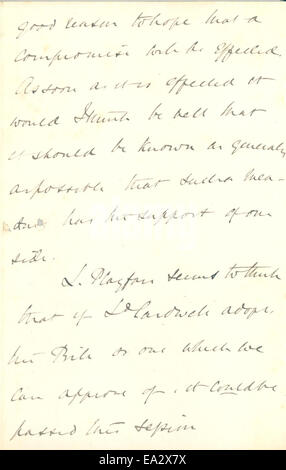 good reason to hope that a
compromise will be effected
As soon as it is effected it
would I think be well that
it should be known as generally
as possible that such a mea-
sure has the support of our
side.
L. Playfair seems to think
that if Ld Cardwell adopts
his Bill or one which we
can approve of, it could be
passed this session
alamy
EA2X7X